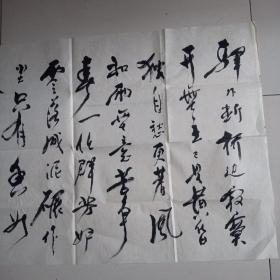 驛外断橋边寂寞
開無主已是黄昏
独自愁更著風
和雨無意苦争
春一任群芳妒
零落成泥碾作
尘只有香如